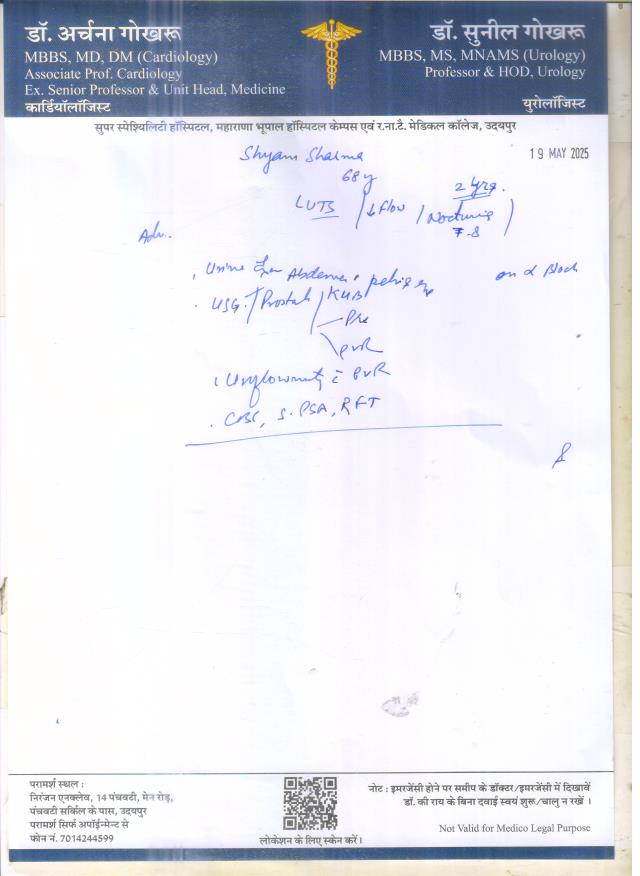 डॉ. अर्चना गोखरू
MBBS, MD, DM (Cardiology)
Associate Prof. Cardiology
Ex. Senior Professor & Unit Head, Medicine
कार्डियॉलॉजिस्ट
डॉ. सुनील गोखरू
MBBS, MS, MNAMS (Urology)
Professor & HOD, Urology
युरोलॉजिस्ट
सुपर स्पेश्यिलिटी हॉस्पिटल, महाराणा भूपाल हॉस्पिटल केम्पस एवं र.ना.टै. मेडिकल कॉलेज, उदयपुर
Shyam Sharma
19 MAY 2025
68 y
2 yrs.
LUTS / ↓ Flow / Nocturia
7-8
Adv.
Urine Abdomen pelvis
on α Block
USG / Prostate / KUB
Pre
PVR
Uroflowmetry c̄ PVR
CBC, S. PSA, RFT
परामर्श स्थल :
निरंजन एनक्लेव, 14 पंचवटी, मेन रोड़,
पंचवटी सर्किल के पास, उदयपुर
परामर्श सिर्फ अपॉईन्मेन्ट से
फोन नं. 7014244599
लोकेशन के लिए स्केन करें।
नोट : इमरजेंसी होने पर समीप के डॉक्टर/इमरजेंसी में दिखावें
डॉ. की राय के बिना दवाई स्वयं शुरू/चालु न रखें ।
Not Valid for Medico Legal Purpose